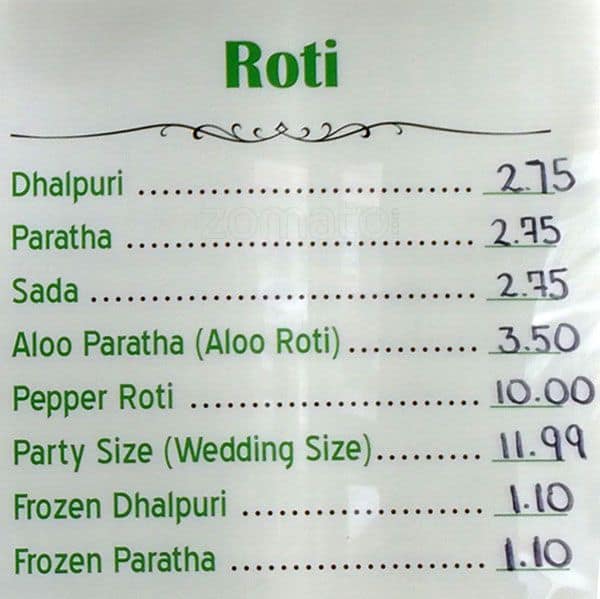 Roti
Dhalpuri ................................ 2.75
zomato
Paratha ................................. 2.75
Sada ..................................... 2.75
Aloo Paratha (Aloo Roti) ............. 3.50
Pepper Roti ............................ 10.00
Party Size (Wedding Size) .......... 11.99
Frozen Dhalpuri ....................... 1.10
Frozen Paratha ........................ 1.10